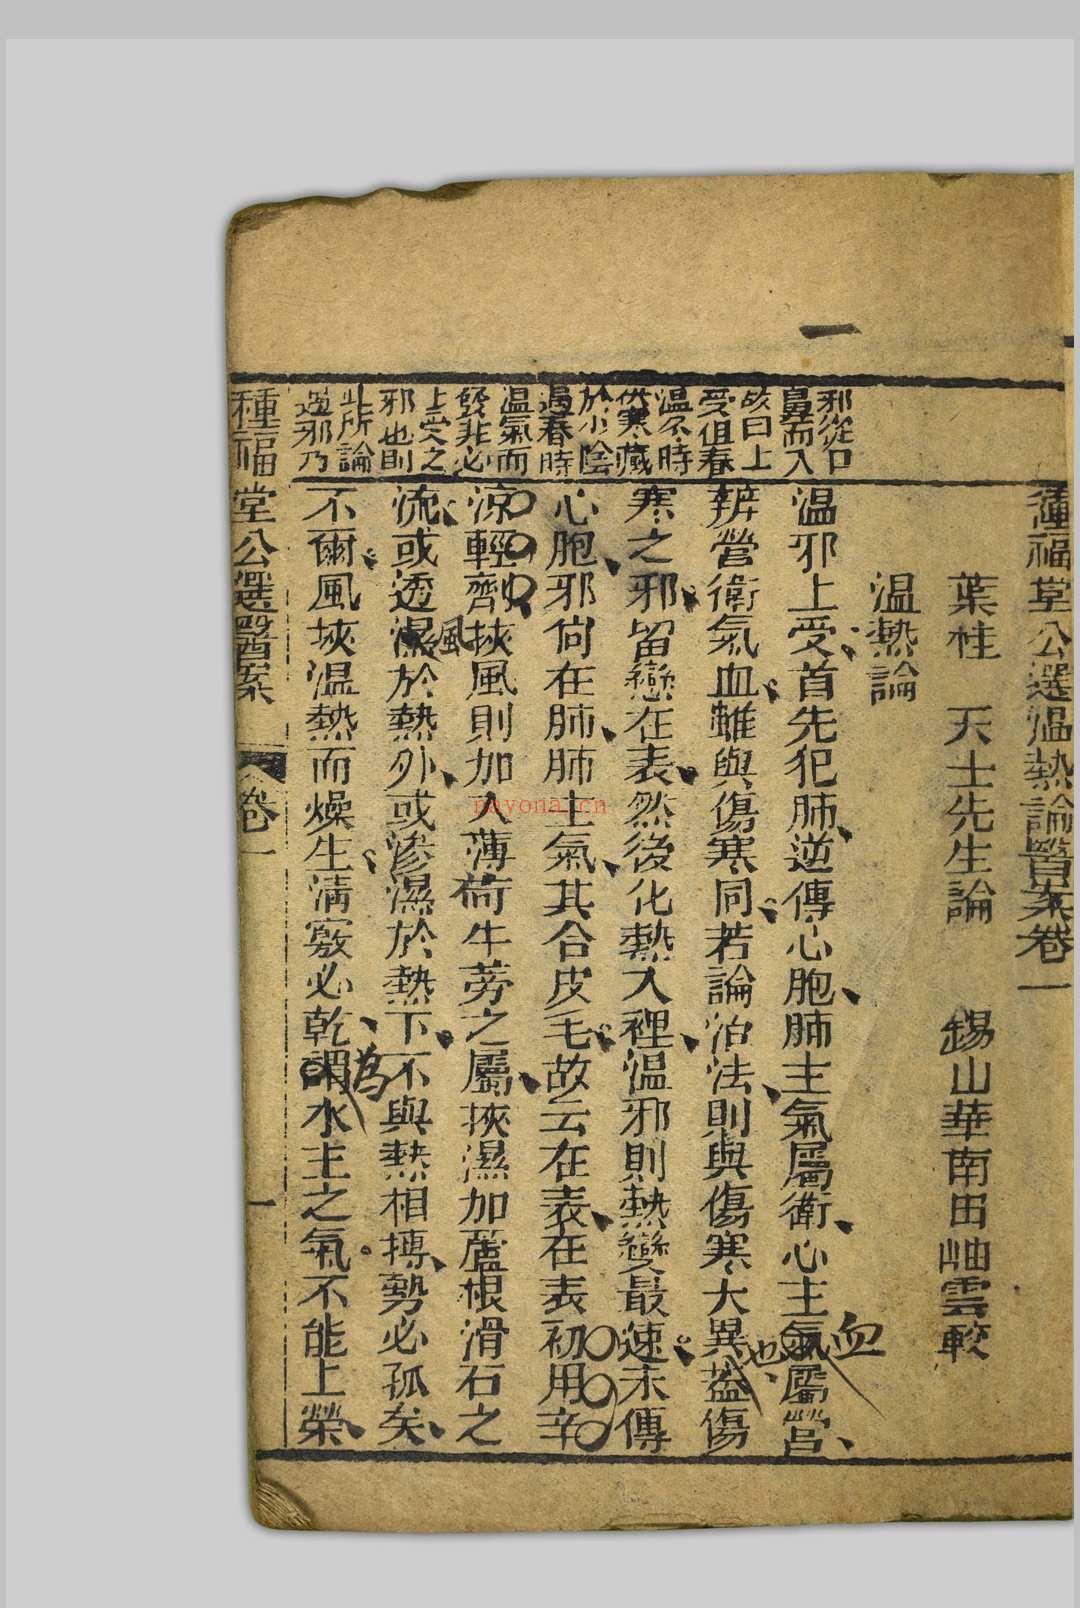 一
種福堂公選溫熱論醫案卷一
葉桂　天士先生論　錫山華南田岫雲較
溫熱論
邪從口
鼻而入
故曰上
受但春
溫冬時
伏寒藏
於少陰
遇春時
溫氣而
發非必
上受之
邪也則
此所論
溫邪乃
溫邪上受首先犯肺逆傳心胞肺主氣屬衛心主氣屬營
血
辨營衛氣血雖與傷寒同若論治法則與傷寒大異蓋傷
也
寒之邪留戀在表然後化熱入裡溫邪則熱變最速未傳
心胞邪尙在肺肺主氣其合皮毛故云在表在表初用辛
涼輕劑挾風則加入薄荷牛蒡之屬挾濕加蘆根滑石之
風
流或透濕於熱外或滲濕於熱下不與熱相摶勢必孤矣
為
不爾風挾溫熱而燥生淸竅必乾謂水主之氣不能上榮
種福堂公選醫案　卷一　一
nayona.cn